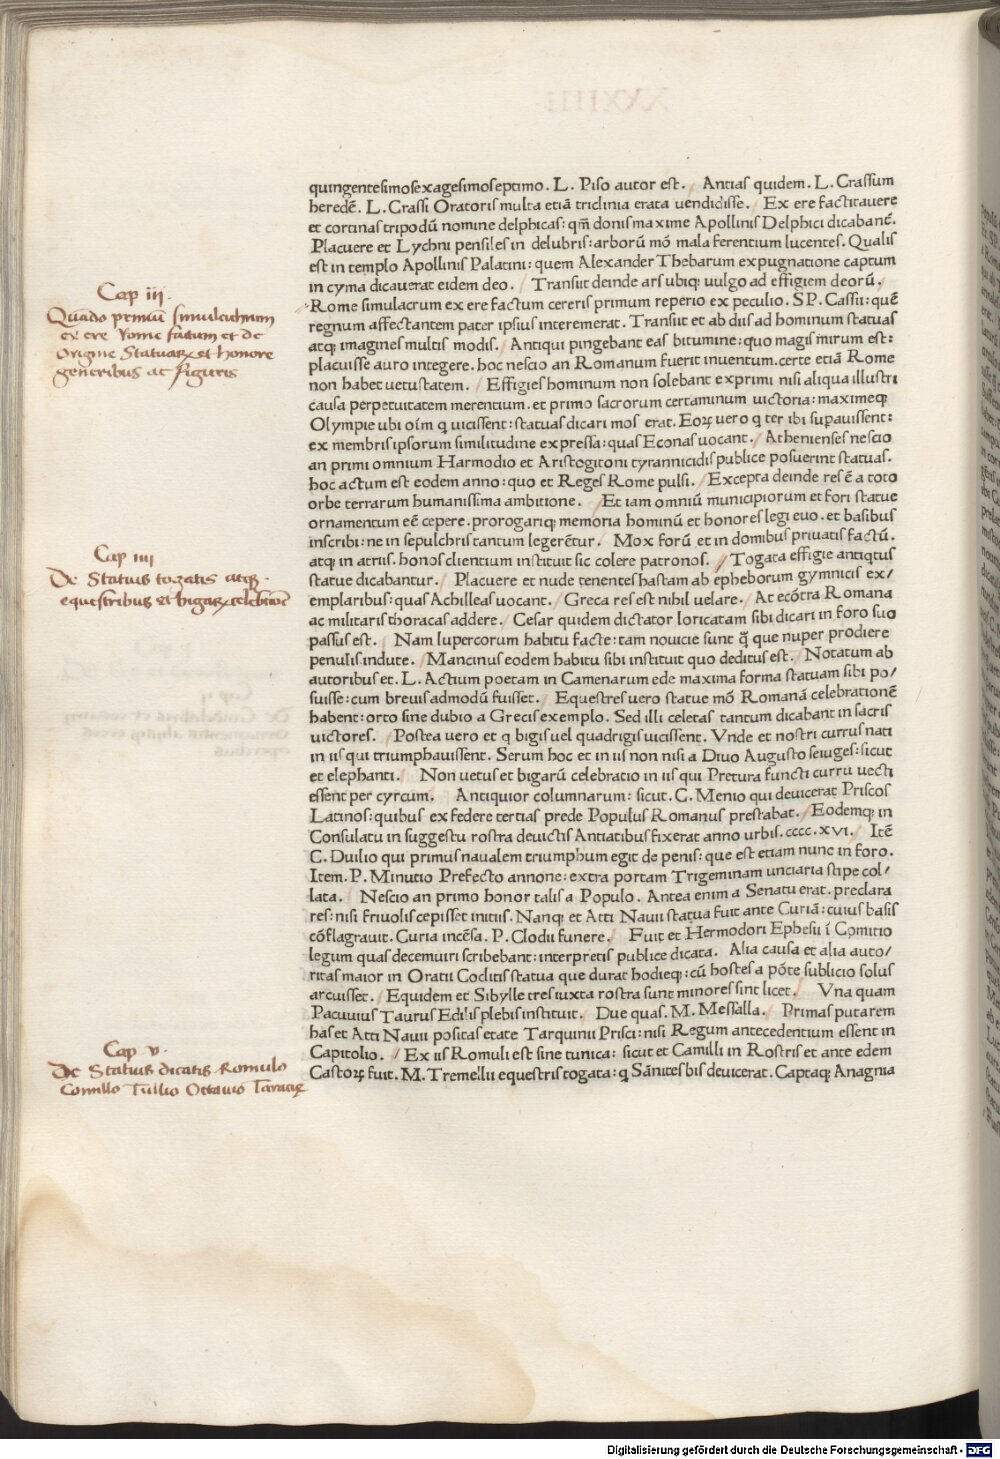 quingentesimosexagesimoseptimo. L. Piso autor est. Antias quidem. L. Crassum
heredē. L. Crassi Oratoris multa etiā triclinia erata uendidisse. Ex ere factitauere
et cortinas tripodū nomine delphicas: qm̄ donis maxime Apollinis Delphici dicabant̄.
Placuere et Lychni pensiles in delubris: arborū mō mala ferentium lucentes. Qualis
est in templo Apollinis Palatini: quem Alexander Thebarum expugnatione captum
in cyma dicauerat eidem deo. / Transiit deinde ars ubiq; uulgo ad effigiem deorū.
Cap iij.
Quādo primū simulachrum
ex ere Rome factum et de
Origine Statuarꝝ et honore
generibus ac figuris
Rome simulacrum ex ere factum cereris primum reperio ex peculio. SP. Cassii: quē
regnum affectantem pater ipsius interemerat. Transiit et ab diis ad hominum statuas
atq; imagines multis modis. / Antiqui pingebant eas bitumine: quo magis mirum est:
placuisse auro integere. hoc nescio an Romanum fuerit inuentum. certe etiā Rome
non habet uetustatem. / Effigies hominum non solebant exprimi nisi aliqua illustri
causa perpetuitatem merentium. et primo sacrorum certaminum uictoria: maximeq;
Olympie ubi oīm q uicissent: statuas dicari mos erat. Eoꝝ uero q ter ibi supauissent:
ex membris ipsorum similitudine expressa: quas Econas uocant. / Athenienses nescio
an primi omnium Harmodio et Aristogitoni tyrannicidis publice posuerint statuas.
hoc actum est eodem anno: quo et Reges Rome pulsi. / Excepta deinde res ē a toto
orbe terrarum humanissima ambitione. / Et iam omniū municipiorum et fori statue
ornamentum eē cepere. prorogariq; memoria hominū et honores legi euo. et basibus
inscribi: ne in sepulchris tantum legerētur. / Mox forū et in domibus priuatis factū.
atq; in atriis. honos clientium instituit sic colere patronos. // Togata effigie antiqtus
Cap iiij
De Statuis togatis atq;
equestribus et bigarꝝ celebratiōe
statue dicabantur. / Placuere et nude tenentes hastam ab epheborum gymnicis ex/
emplaribus: quas Achilleas uocant. / Greca res est nihil uelare. / At ecōtra Romana
ac militaris thoracas addere. / Cesar quidem dictator loricatam sibi dicari in foro suo
passus est. / Nam lupercorum habitu facte: tam nouicie sunt q̄ que nuper prodiere
penulis indute. / Mancinus eodem habitu sibi instituit quo deditus est. / Notatum ab
autoribus et. L. Actium poetam in Camenarum ede maxima forma statuam sibi po/
suisse: cum breuis admodū fuisset. / Equestres uero statue mō Romanā celebrationē
habent: orto sine dubio a Grecis exemplo. Sed illi celetas tantum dicabant in sacris
uictores. / Postea uero et q bigis uel quadrigis uicissent. Vnde et nostri currus nati
in iis qui triumphauissent. Serum hoc et in iis non nisi a Diuo Augusto seiuges: sicut
et elephanti. / Non uetus et bigarū celebratio in iis qui Pretura functi curru uecti
essent per cyrcum. / Antiquior columnarum: sicut. C. Menio qui deuicerat Priscos
Latinos: quibus ex federe tertias prede Populus Romanus prestabat. / Eodemq; in
Consulatu in suggestu rostra deuictis Antiatibus fixerat anno urbis. cccc. xvi. / Itē
C. Duilio qui primus naualem triumphum egit de penis: que est etiam nunc in foro.
Item. P. Minutio Prefecto annone: extra portam Trigeminam unciaria stipe col/
lata. / Nescio an primo honor talis a Populo. Antea enim a Senatu erat. preclara
res: nisi friuolis cepisset initiis. Nanq; et Atti Nauii statua fuit ante Curiā: cuius basis
cōflagrauit. Curia incēsa. P. Clodii funere. / Fuit et Hermodori Ephesii ī Comitio
legum quas decemuiri scribebant: interpretis publice dicata. / Alia causa et alia auto/
ritas maior in Oratii Coclitis statua que durat hodieq;: cū hostes a pōte sublicio solus
arcuisset. / Equidem et Sibylle tres iuxta rostra sunt minores sint licet. / Vna quam
Pacuuius Taurus Edilis plebis instituit. / Due quas. M. Messalla. / Primas putarem
has et Atti Nauii positas etate Tarquinii Prisci: nisi Regum antecedentium essent in
Cap v.
De Statuis dicatis Romulo
Camillo Tullio Octauio
Capitolio. / Ex iis Romuli est sine tunica: sicut et Camilli in Rostris et ante edem
Castoꝝ fuit. M. Tremellii equestris togata: q Sānites bis deuicerat. Captaq; Anagnia
Digitalisierung gefördert durch die Deutsche Forschungsgemeinschaft - DFG